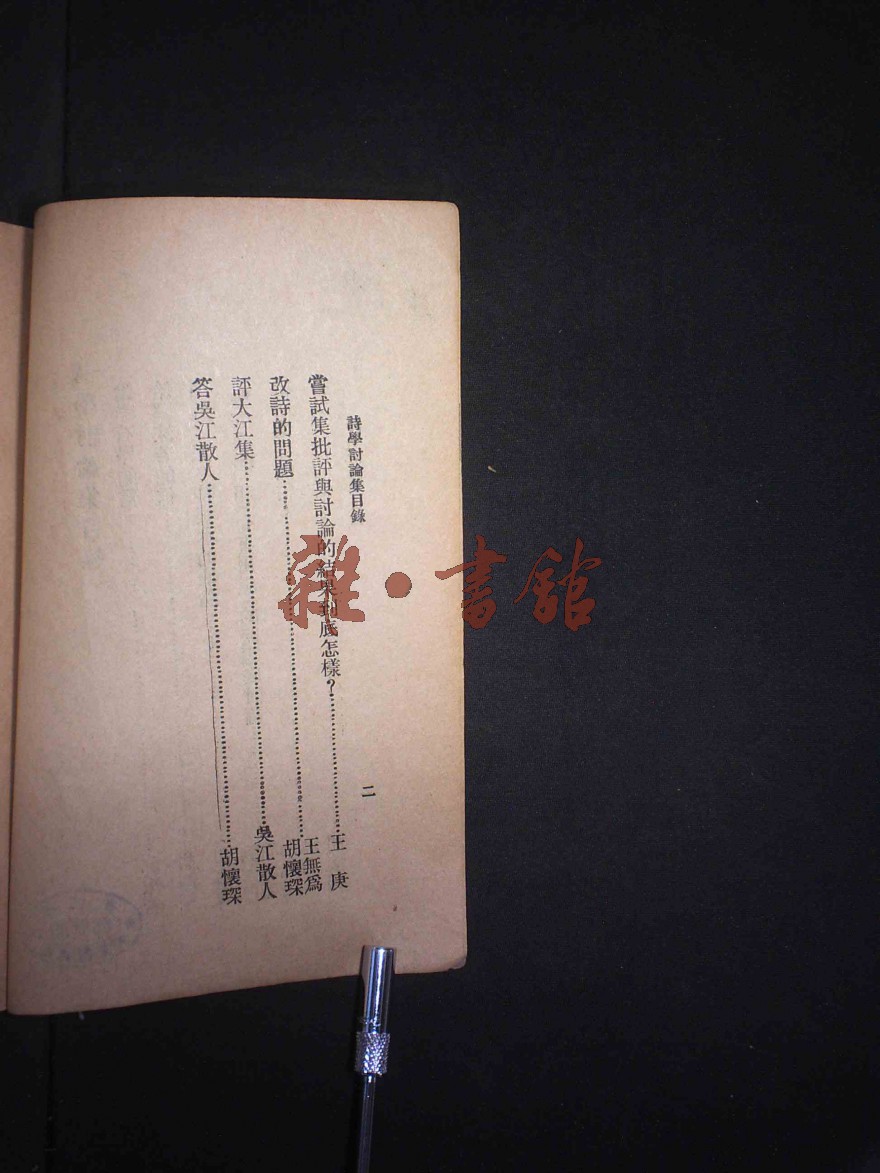 詩學討論集目錄
二
嘗試集批評與討論的結果到底怎樣？……王庚
改詩的問題……王無爲 胡懷琛
評大江集……吳江散人
答吳江散人……胡懷琛
雜·書館